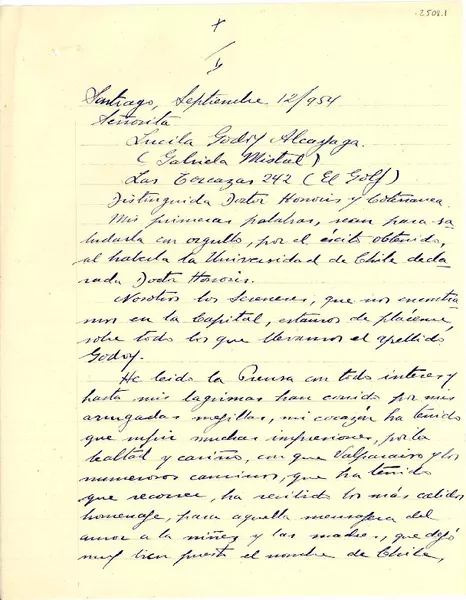 .2508.1
Santiago, Septiembre 12/954
Señorita
Lucila Godoy Alcayaga.
(Gabriela Mistral)
Las Torcazas 242 (El Golf)
Distinguida Doctor Honoris y Coterránea.
Mis primeras palabras, sean para sa
ludarla con orgullo, por el éxito obtenido,
al haberla la Universidad de Chile decla
rada Doctor Honoris.
Nosotros los Serenenses, que nos encontra
mos en la Capital, estamos de plácemes,
sobre todo los que llevamos el apellido
Godoy.
He leido la Prensa con todo interes y
hasta mis lagrimas han corrido por mis
arrugadas mejillas, mi corazón ha tenido
que sufrir muchas impresiones, por la
lealtad y cariño, con que Valparaiso y los
numerosos caminos, que ha tenido
que recorrer, ha recibido los más calidos
homenaje, para aquella mensajera del
amor a la niñez y las madres, que dejó
muy bien puesto el nombre de Chile,